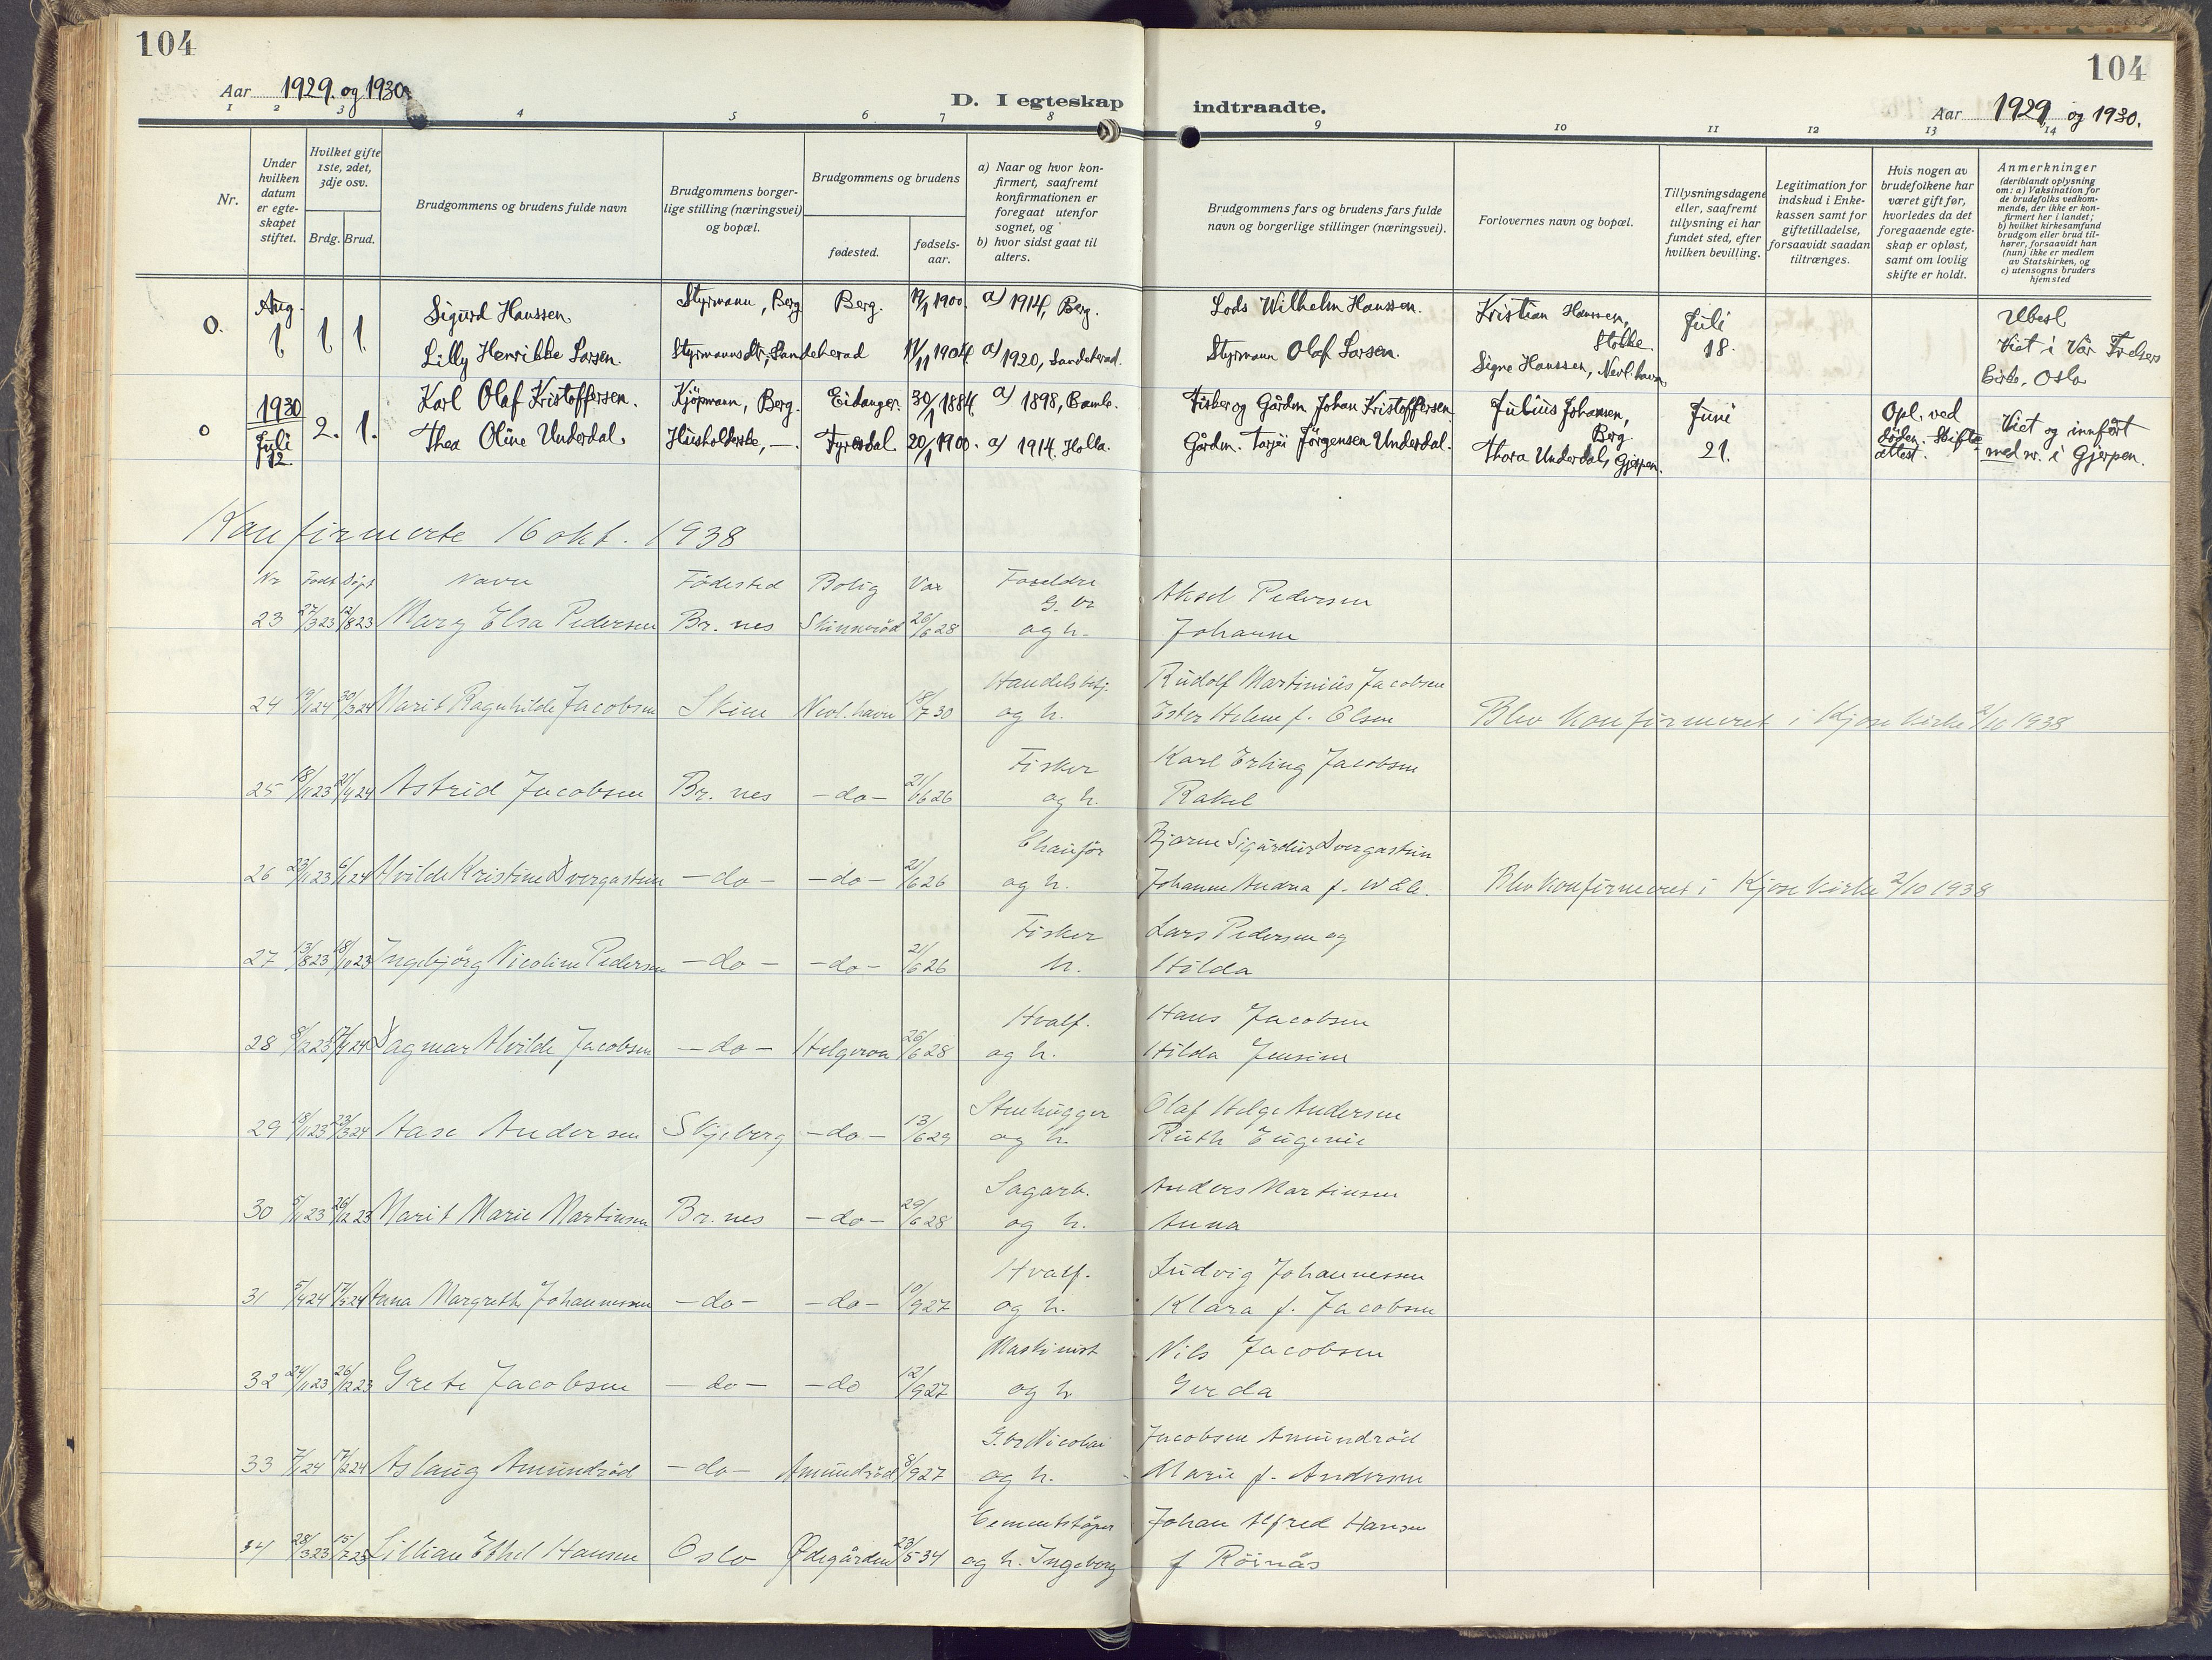 104
104
Aar 1929. og 1930.
D. I egteskap indtraadte.
Aar 1929 og 1930.
1 2 3 4 5 6 7 8 9 10 11 12 13 14
Nr.
Under hvilken datum er egteskapet stiftet.
Hvilket gifte 1ste, 2det, 3dje osv.
Brdg. Brud.
Brudgommens og brudens fulde navn
Brudgommens borgerlige stilling (næringsvei) og bopæl.
Brudgommens og brudens
fødested.
fødselsaar.
a) Naar og hvor konfirmert, saafremt konfirmationen er foregaat utenfor sognet, og
b) hvor sidst gaat til alters.
Brudgommens fars og brudens fars fulde navn og borgerlige stillinger (næringsvei).
Forlovernes navn og bopæl.
Tillysningsdagene eller, saafremt tillysning ei har fundet sted, efter hvilken bevilling.
Legitimation for indskud i Enkekassen samt for giftetilladelse, forsaavidt saadan tiltrænges.
Hvis nogen av brudefolkene har været gift før, hvorledes da det foregaaende egteskap er opløst, samt om lovlig skifte er holdt.
Anmerkninger (deriblandt oplysning om: a) Vaksination for de brudefolks vedkommende, der ikke er konfirmert her i landet; b) hvilket kirkesamfund brudgom eller brud tilhører, forsaavidt han (hun) ikke er medlem av Statskirken, og c) utensogns bruders hjemsted
0. Aug. 1 1 1. Sigurd Hanssen. Styrmann, Berg Berg. 19/1 1900. a) 1914, Berg. Lods Wilhelm Hanssen. Kristian Hanssen, Stokke. Juli 18. Ubesl
Lilly Henrikke Larsen. Styrmannsdtr, Sandeherad 11/11 1904. a) 1920, Sandeherad. Styrmann Olaf Larsen. Signe Hanssen, Nevl.havn Viet i Vår Frelsers Kirke, Oslo
0 1930 Juli 12. 2. 1. Karl Olaf Kristoffersen. Kjöpmann, Berg. Eidanger. 30/1 1884. a) 1898, Bamle. Fisker og Gårdm. Johan Kristoffersen Julius Johansen, Berg. Juni 21. Opl. ved döden. Skifteattest. Viet og innfört
Thea Oline Underdal. Husholderske, — . Fyresdal. 20/1 1900. a) 1914. Holla. Gårdm. Tarjei Jörgensen Underdal. Thora Underdal, Gjerpen. med nr. i Gjerpen.
Konfirmerte 16 okt. 1938
Nr Födt Döpt Navn Födested Bolig Vax Foreldre
23 27/3 23 12/8 23 Mary Elsa Pedersen Br. nes Skinneröd 26/6 28 G. br og h. Aksel Pedersen
Johanne
24 19/1 24 30/3 24 Marit Ragnhilde Jacobsen Skien Nevl. havn 18/7 30 Handelsbetj. og h. Rudolf Martinius Jacobsen
Ester Helene f. Olsen Blev konfirmeret i Kjose kirke 2/10 1938
25 18/11 23 21/4 24 Astrid Jacobsen Br. nes — do — 21/6 26 Fisker og h. Karl Erling Jacobsen
Rakel
26 23/11 23 6/1 24 Alvilde Kristine Dvergastein — do — — do — 21/6 26 Chauför og h. Bjarne Sigurdur Dvergastein
Johanne Andrea f. Blev konfirmeret i Kjose kirke 2/10 1938
27 13/8 23 18/10 23 Ingebjörg Nicoline Pedersen — do — — do — 21/6 26 Fisker Lars Pedersen og
h. Hilda
28 9/12 23 17/4 24 Dagmar Alvilde Jacobsen — do — Helgeroa 26/6 28 Hvalf. og h. Hans Jacobsen
Hilda Jensine
29 18/11 23 23/3 24 Aase Andersen Skjeberg — do — 13/6 29 Stenhugger og h. Olaf Helge Andersen
Ruth Eugenie
30 5/11 23 26/12 23 Marit Marie Martinsen Br. nes — do — 29/6 28 Sagarb. og h. Anders Martinsen
Anna
31 5/4 24 17/5 24 Anna Margrethe Johannessen — do — — do — 10/9 27 Hvalf. og h. Ludvig Johannessen
Klara f. Jacobsen
32 24/11 23 26/12 23 Grete Jacobsen — do — — do 12/9 27 Maskinist og h Nils Jacobsen
Gerda
33 7/1 24 17/2 24 Aslaug Amundröd — do — Amundröd 8/9 27 G. br Nicolai og h. Jacobsen Amundröd
Marie f. Andersen
34 28/3 23 15/7 23 Lillian Ethel Hansen Oslo Ødegården 23/5 34 Cementstöper og h. Ingeborg Johan Alfred Hansen
f Röinås